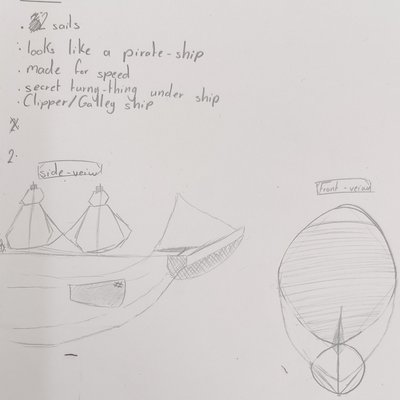 . 2 sails
. looks like a pirate-ship
. made for speed
. secret turny-thing under ship
. Clipper/Galley ship
2.
side-veiw
front-veiw